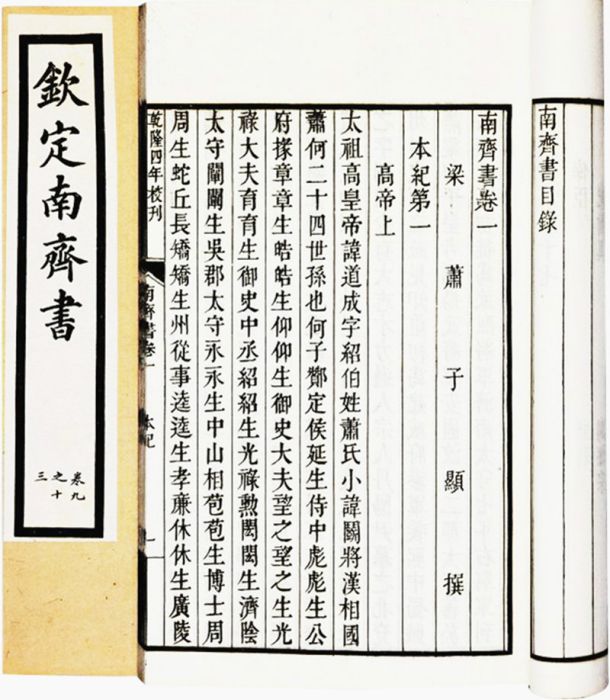 南齊書目錄
南齊書卷一
梁蕭子顯撰
本紀第一
高帝上
太祖高皇帝諱道成字紹伯姓蕭氏小諱鬭將漢相國
蕭何二十四世孫也何子酇定侯延生侍中彪彪生公
府掾章章生皓皓生仰仰生御史大夫望之望之生光
祿大夫育育生御史中丞紹紹生光祿勳閎閎生濟陰
太守闡闡生吳郡太守永永生中山相苞苞生博士周
周生蛇丘長矯矯生州從事逵逵生孝廉休休生廣陵
乾隆四年校刊 南齊書卷一 本紀 一
欽定南齊書
卷九
之十
三